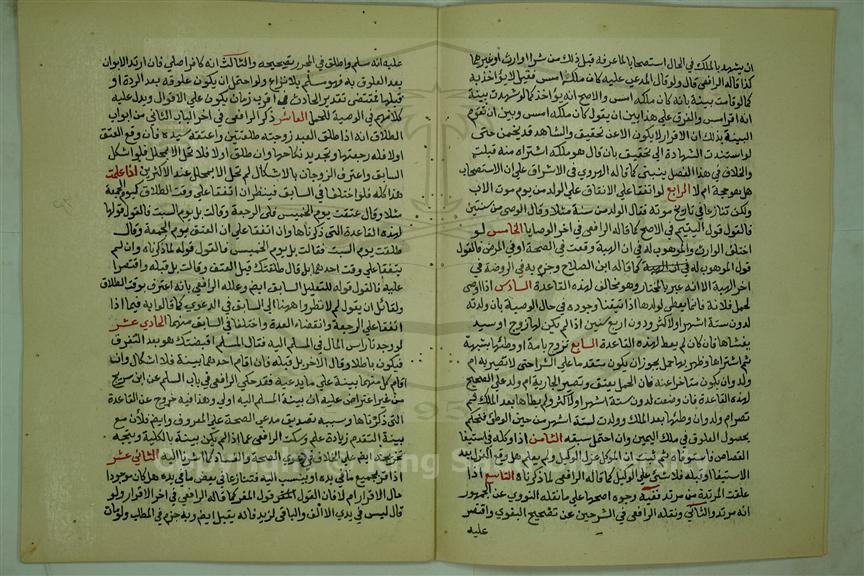 ان يشهد بالملك في الحال استصحابا لما عرفه قبل ذلك من شرا او ارث او غيرها
كذا قاله الرافعي قال ولو قال المدعى عليه كان ملكك امس فقيل لا يؤاخذ به
كما لو قامت بينة بانه كان ملكه امس والاصح انه يؤاخذ كما لو شهدت بينة
انه اقر امس والفرق على هذا بين ان يقول كان ملكك امس وبين ان تقوم
البينة بذلك ان الاقرار لا يكون الا عن تحقيق والشاهد قد يخمن حتى
لو استندت الشهادة الى تحقيق بان قال هو ملكه اشتراه منه قبلت
والخلاف في هذا الفصل ينبني كما قاله الهروي في الاشراف على ان الاستصحاب
هل هو حجة ام لا الرابع لو اتفقا على الانفاق على الولد من يوم موت الاب
ولكن تنازعا في تاريخ موته فقال الولد من سنة مثلا وقال الوصي من سنتين
فالقول قول اليتيم في الاصح كما قاله الرافعي في اخر الوصايا الخامس لو
اختلف الوارث والموهوب له في ان الهبة وقعت في الصحة او في المرض فالقول
قول الموهوب له كما قاله ابن الصلاح وجزم به في الروضة في
اخر الهبة الا انه عبر بالمختار وهو مخالف لهذه القاعدة السادس اذا اوصى
لحمل فلانة فانما يعطى لولدها اذا تيقنا وجوده في حال الوصية بان ولدته
لدون ستة اشهر او لاكثر ودون اربع سنين اذا لم يكن لها زوج او سيد
يغشاها فان كان لم يعط لهذه القاعدة السابع تزوج بامة او وطئها بشبهة
ثم اشتراها وظهر بها حمل يجوز ان يكون متقدما على الشرا حتى لا تصير به ام
ولد وان يكون متاخرا عنه فان الحمل يعتق وتصير الجارية ام ولد على الصحيح
لهذه القاعدة فان وضعت لدون ستة اشهر او لاكثر ولم يطاها بعد الملك لم
تصر ام ولد وان وطئها بعد الملك وولدت لستة اشهر من حين الوطئ فنحكم
بحصول العلوق في ملك اليمين وان احتمل سبقه الثامن اذا وكله في استيفا
القصاص فاستوفاه ثم ثبت ان الموكل عزل الوكيل ولم يعلم هل وقع العزل بعد
الاستيفا او قبله فلا شئ على الوكيل كما قاله الرافعي لما ذكرناه التاسع اذا
علقت المرتدة من مرتد ففيه وجوه اصحها على ما نقله النووي عن الجمهور
انه مرتد والثاني ونقله الرافعي في الشرحين عن تصحيح البغوي واقتصر
عليه
عليه انه مسلم واطلق في المحرر تصحيحه والثالث انه كافر اصلي فان ارتد الابوان
بعد العلوق به فهو مسلم بلا نزاع ولو احتمل ان يكون علوقه بعد الردة او
قبلها فمقتضى تقدير الحادث في اقرب زمان يكون على الاقوال ويدل عليه
كلامهم في الوصية للحمل العاشر ذكر الرافعي في اخر الباب الثاني من ابواب
الطلاق انه اذا طلق العبد زوجته طلقتين واعتقه سيده فان وقع العتق
اولا فله رجعتها وتجديد نكاحها وان طلق اولا فلا تحل الا بمحلل فلو اشكل
السابق واعترف الزوجان بالاشكال لم تحل الا بمحلل عند الاكثرين اذا علمت
هذا كله فلو اختلفا في السابق فينظر ان اتفقا على وقت الطلاق كيوم الجمعة
مثلا وقال عتقت يوم الخميس فلي الرجعة وقالت بل يوم السبت فالقول قولها
لهذه القاعدة التي ذكرناها وان اتفقا على ان العتق يوم الجمعة وقال
طلقت يوم السبت فقالت بل يوم الخميس فالقول قوله لما ذكرناه وان لم
يتفقا على وقت احدهما بل قال طلقتك قبل العتق وقالت بل قبله واقتصرا
عليه فالقول قوله للتعليل السابق ايضا وعلله الرافعي بانه اعترف بوقت الطلاق
ولقائل ان يقول لم لا نظروا ههنا الى السابق في الدعوى كما قالوا به فيما اذا
اتفقا على الرجعة وانقضاء العدة واختلفا في السابق منهما الحادي عشر
لو وجدنا راس المال في المسلم اليه فقال المسلم اقبضتك هو بعد التفرق
فيكون باطلا وقال الاخر بل قبله فان اقام احدهما بينة فلا اشكال وان
اقام كل منهما بينة على ما يدعيه فقد حكى الرافعي في باب السلم عن ابن سريج
من غير اعتراض عليه ان بينة المسلم اليه اولى وهذا فيه خروج عن القاعدة
التي ذكرناها وسببه تصديق مدعي الصحة على المعروف وايضا فلان مع
بينة التقدم زيادة علم وسكت الرافعي عما اذا لم يكن بينة بالكلية ويتجه
تخريجه ايضا على الخلاف في دعوى الصحة والفساد كما اشرنا اليه الثاني عشر
اذا اقر بجميع ما في يده او ينسب اليه فتنازعا في بعض ما في يده هل كان موجودا
حال الاقرار ام لا فان القول قول المقر كما قاله الرافعي في اخر الاقرار ولو
قال ليس في يدي الا الف والباقي لزيد فانه يقبل ايضا وبه جزم في المطلب ولو مات